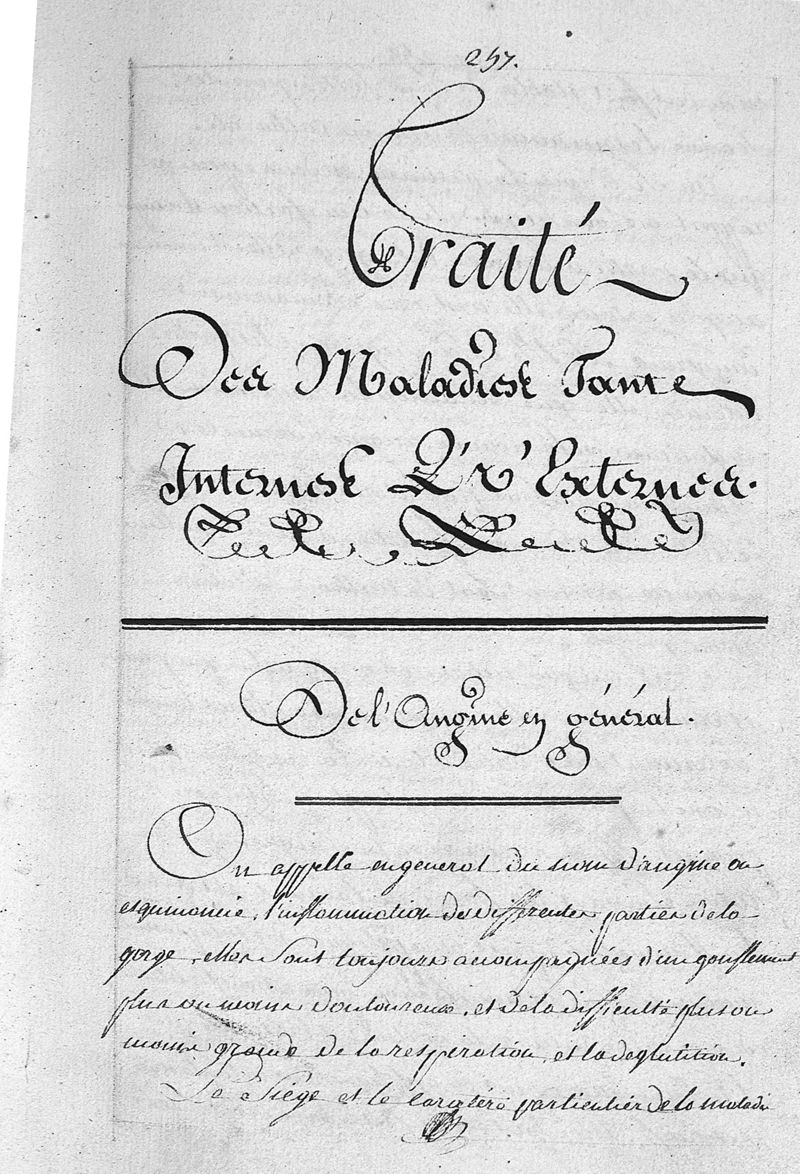 257.
Traité
Des Maladies Tant
Internes Et Externes.
De l'Angine en général.
On appelle en general du nom d'angine ou
esquinancie, l'inflammation des differentes parties de la
gorge, elles sont toujours accompagnées d'un gonflement
plus ou moins douloureux, et de la difficulté plus ou
moins grande de la respiration, et la deglutition.
Le Siége et le caractéré particuliér de la maladie